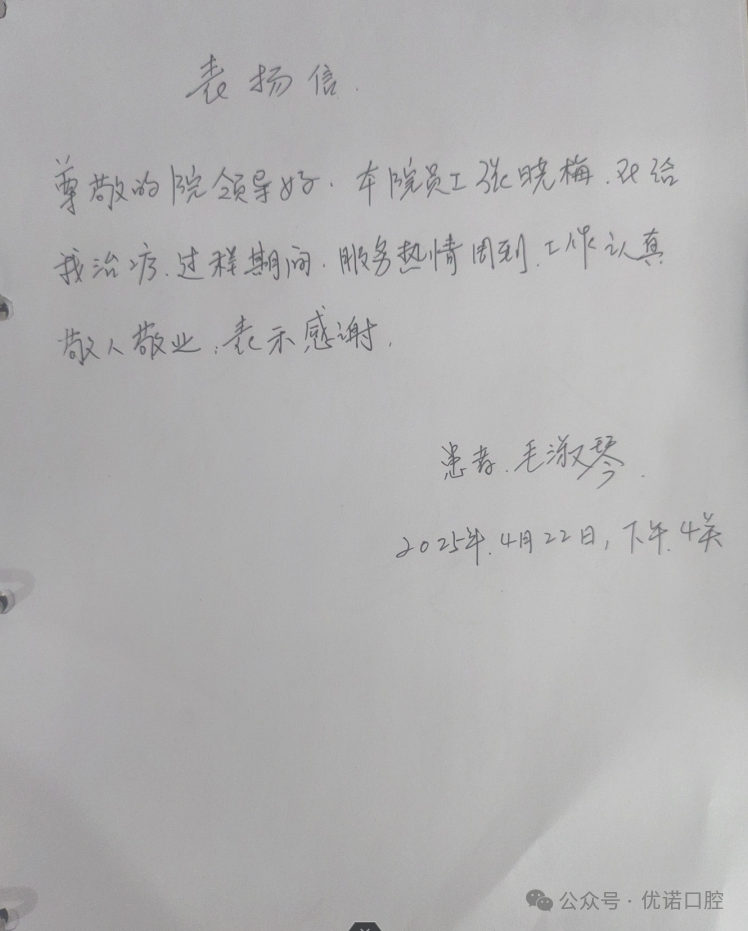 表扬信.
尊敬的院领导好.本院员工张晓梅.在给
我治疗.过程期间.服务热情周到.工作认真
敬人敬业.表示感谢.
患者.毛淑琴.
2025年.4月22日,下午.4关
公众号·优诺口腔